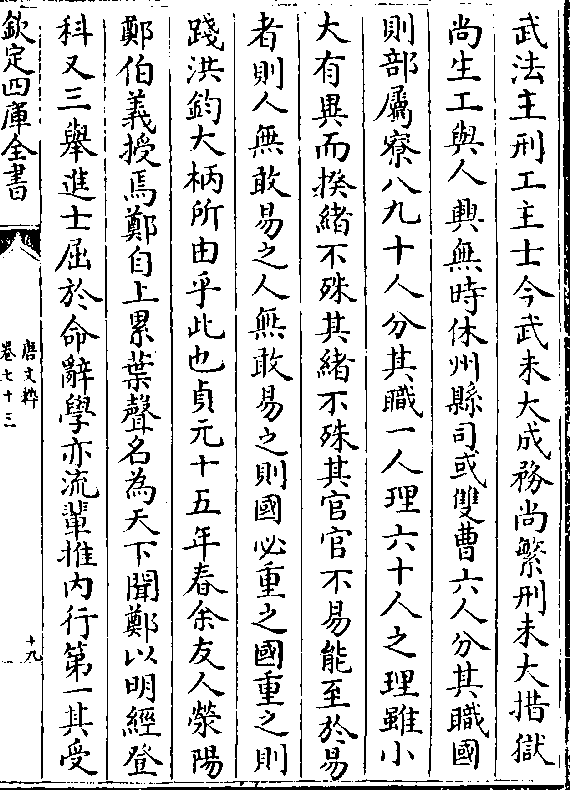 武法主刑工主士今武未大成務尚繁刑未大措獄
尚生工與人興無時休州縣司或雙曹六人分其職國
則部屬寮八九十人分其職一人理六十人之理雖小
大有異而揆緒不殊其緒不殊其官官不易能至於易
者則人無敢易之人無敢易之則國必重之國重之則
踐洪鈞大柄所由乎此也貞元十五年春余友人滎陽
鄭伯義授焉鄭自上累葉聲名為天下聞鄭以明經登
科又三舉進士屈於命辭學亦流輩推內行第一其受
欽定四庫全書
唐文粹
卷七十三
十九